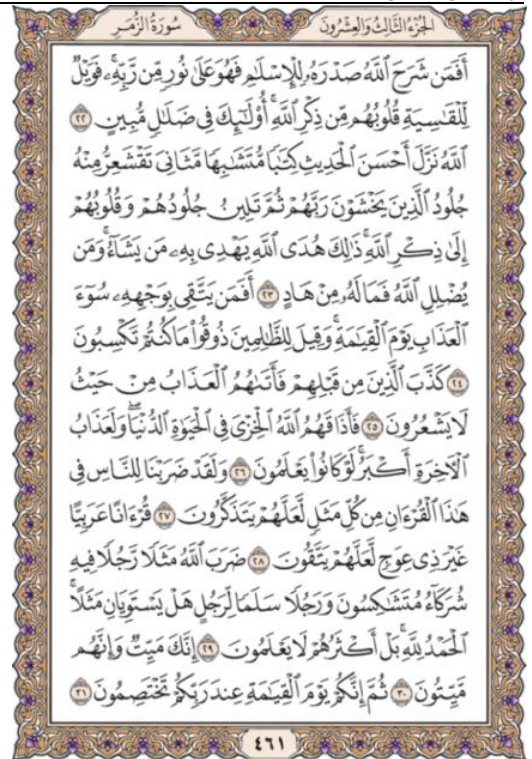 الجزء الثالث والعشرون
سورة الزمر
أَفَمَن شَرَحَ ٱللَّهُ صَدْرَهُۥ لِلْإِسْلَٰمِ فَهُوَ عَلَىٰ نُورٍ مِّن رَّبِّهِۦۚ فَوَيْلٌ
لِّلْقَٰسِيَةِ قُلُوبُهُم مِّن ذِكْرِ ٱللَّهِۚ أُو۟لَٰٓئِكَ فِى ضَلَٰلٍ مُّبِينٍ ٢٢
ٱللَّهُ نَزَّلَ أَحْسَنَ ٱلْحَدِيثِ كِتَٰبًا مُّتَشَٰبِهًا مَّثَانِىَ تَقْشَعِرُّ مِنْهُ
جُلُودُ ٱلَّذِينَ يَخْشَوْنَ رَبَّهُمْ ثُمَّ تَلِينُ جُلُودُهُمْ وَقُلُوبُهُمْ
إِلَىٰ ذِكْرِ ٱللَّهِۚ ذَٰلِكَ هُدَى ٱللَّهِ يَهْدِى بِهِۦ مَن يَشَآءُۚ وَمَن
يُضْلِلِ ٱللَّهُ فَمَا لَهُۥ مِنْ هَادٍ ٢٣ أَفَمَن يَتَّقِى بِوَجْهِهِۦ سُوٓءَ
ٱلْعَذَابِ يَوْمَ ٱلْقِيَٰمَةِۚ وَقِيلَ لِلظَّٰلِمِينَ ذُوقُوا۟ مَا كُنتُمْ تَكْسِبُونَ
٢٤ كَذَّبَ ٱلَّذِينَ مِن قَبْلِهِمْ فَأَتَىٰهُمُ ٱلْعَذَابُ مِنْ حَيْثُ
لَا يَشْعُرُونَ ٢٥ فَأَذَاقَهُمُ ٱللَّهُ ٱلْخِزْىَ فِى ٱلْحَيَوٰةِ ٱلدُّنْيَاۖ وَلَعَذَابُ
ٱلْءَاخِرَةِ أَكْبَرُۚ لَوْ كَانُوا۟ يَعْلَمُونَ ٢٦ وَلَقَدْ ضَرَبْنَا لِلنَّاسِ فِى
هَٰذَا ٱلْقُرْءَانِ مِن كُلِّ مَثَلٍ لَّعَلَّهُمْ يَتَذَكَّرُونَ ٢٧ قُرْءَانًا عَرَبِيًّا
غَيْرَ ذِى عِوَجٍ لَّعَلَّهُمْ يَتَّقُونَ ٢٨ ضَرَبَ ٱللَّهُ مَثَلًا رَّجُلًا فِيهِ
شُرَكَآءُ مُتَشَٰكِسُونَ وَرَجُلًا سَلَمًا لِّرَجُلٍ هَلْ يَسْتَوِيَانِ مَثَلًاۚ
ٱلْحَمْدُ لِلَّهِۚ بَلْ أَكْثَرُهُمْ لَا يَعْلَمُونَ ٢٩ إِنَّكَ مَيِّتٌ وَإِنَّهُم
مَّيِّتُونَ ٣٠ ثُمَّ إِنَّكُمْ يَوْمَ ٱلْقِيَٰمَةِ عِندَ رَبِّكُمْ تَخْتَصِمُونَ ٣١
٤٦١